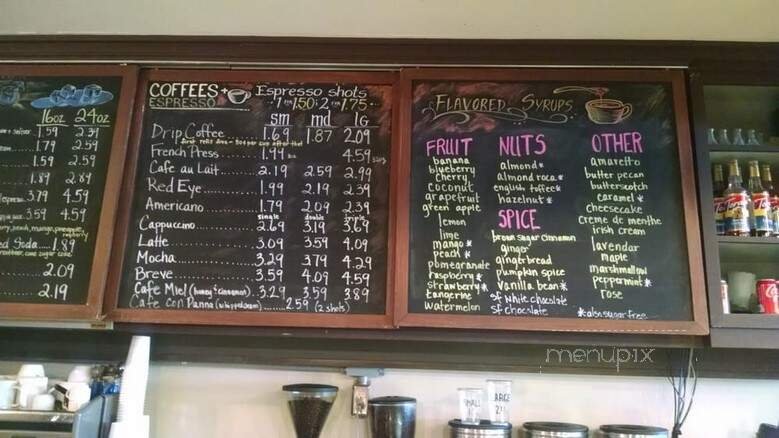 16oz 24oz
1.59 2.39
1.79 2.59
1.59 2.59
1.89 2.89
3.79 4.59
3.59 4.59
Soda 1.89
2.09
2.19
COFFEES +
ESPRESSO
Espresso shots
1 for 1.50 : 2 for 1.75
sm md lg
Drip Coffee 1.69 1.87 2.09
French Press 1.99 4.59
Cafe au Lait 2.19 2.59 2.99
Red Eye 1.99 2.19 2.39
Americano 1.79 2.09 2.39
single double triple
Cappuccino 2.69 3.19 3.69
Latte 3.09 3.59 4.09
Mocha 3.29 3.79 4.29
Breve 3.59 4.09 4.59
Cafe Miel (honey & cinnamon) 3.29 3.59 3.89
Cafe Con Panna (whipped cream) 2.59 (2 shots)
FLAVORED SYRUPS
FRUIT
banana
blueberry
cherry
coconut
grapefruit
green apple
lemon
lime
mango*
peach*
pomegranate
raspberry*
strawberry*
tangerine
watermelon
NUTS
almond*
almond roca*
english toffee*
hazelnut*
SPICE
brown sugar cinnamon
ginger
gingerbread
pumpkin spice
vanilla bean*
sf white chocolate
sf chocolate
OTHER
amaretto
butter pecan
butterscotch
caramel*
cheesecake
creme de menthe
irish cream
lavendar
maple
marshmallow
peppermint*
rose
*also sugar free
Torani
SMALL
LARGE
menupix